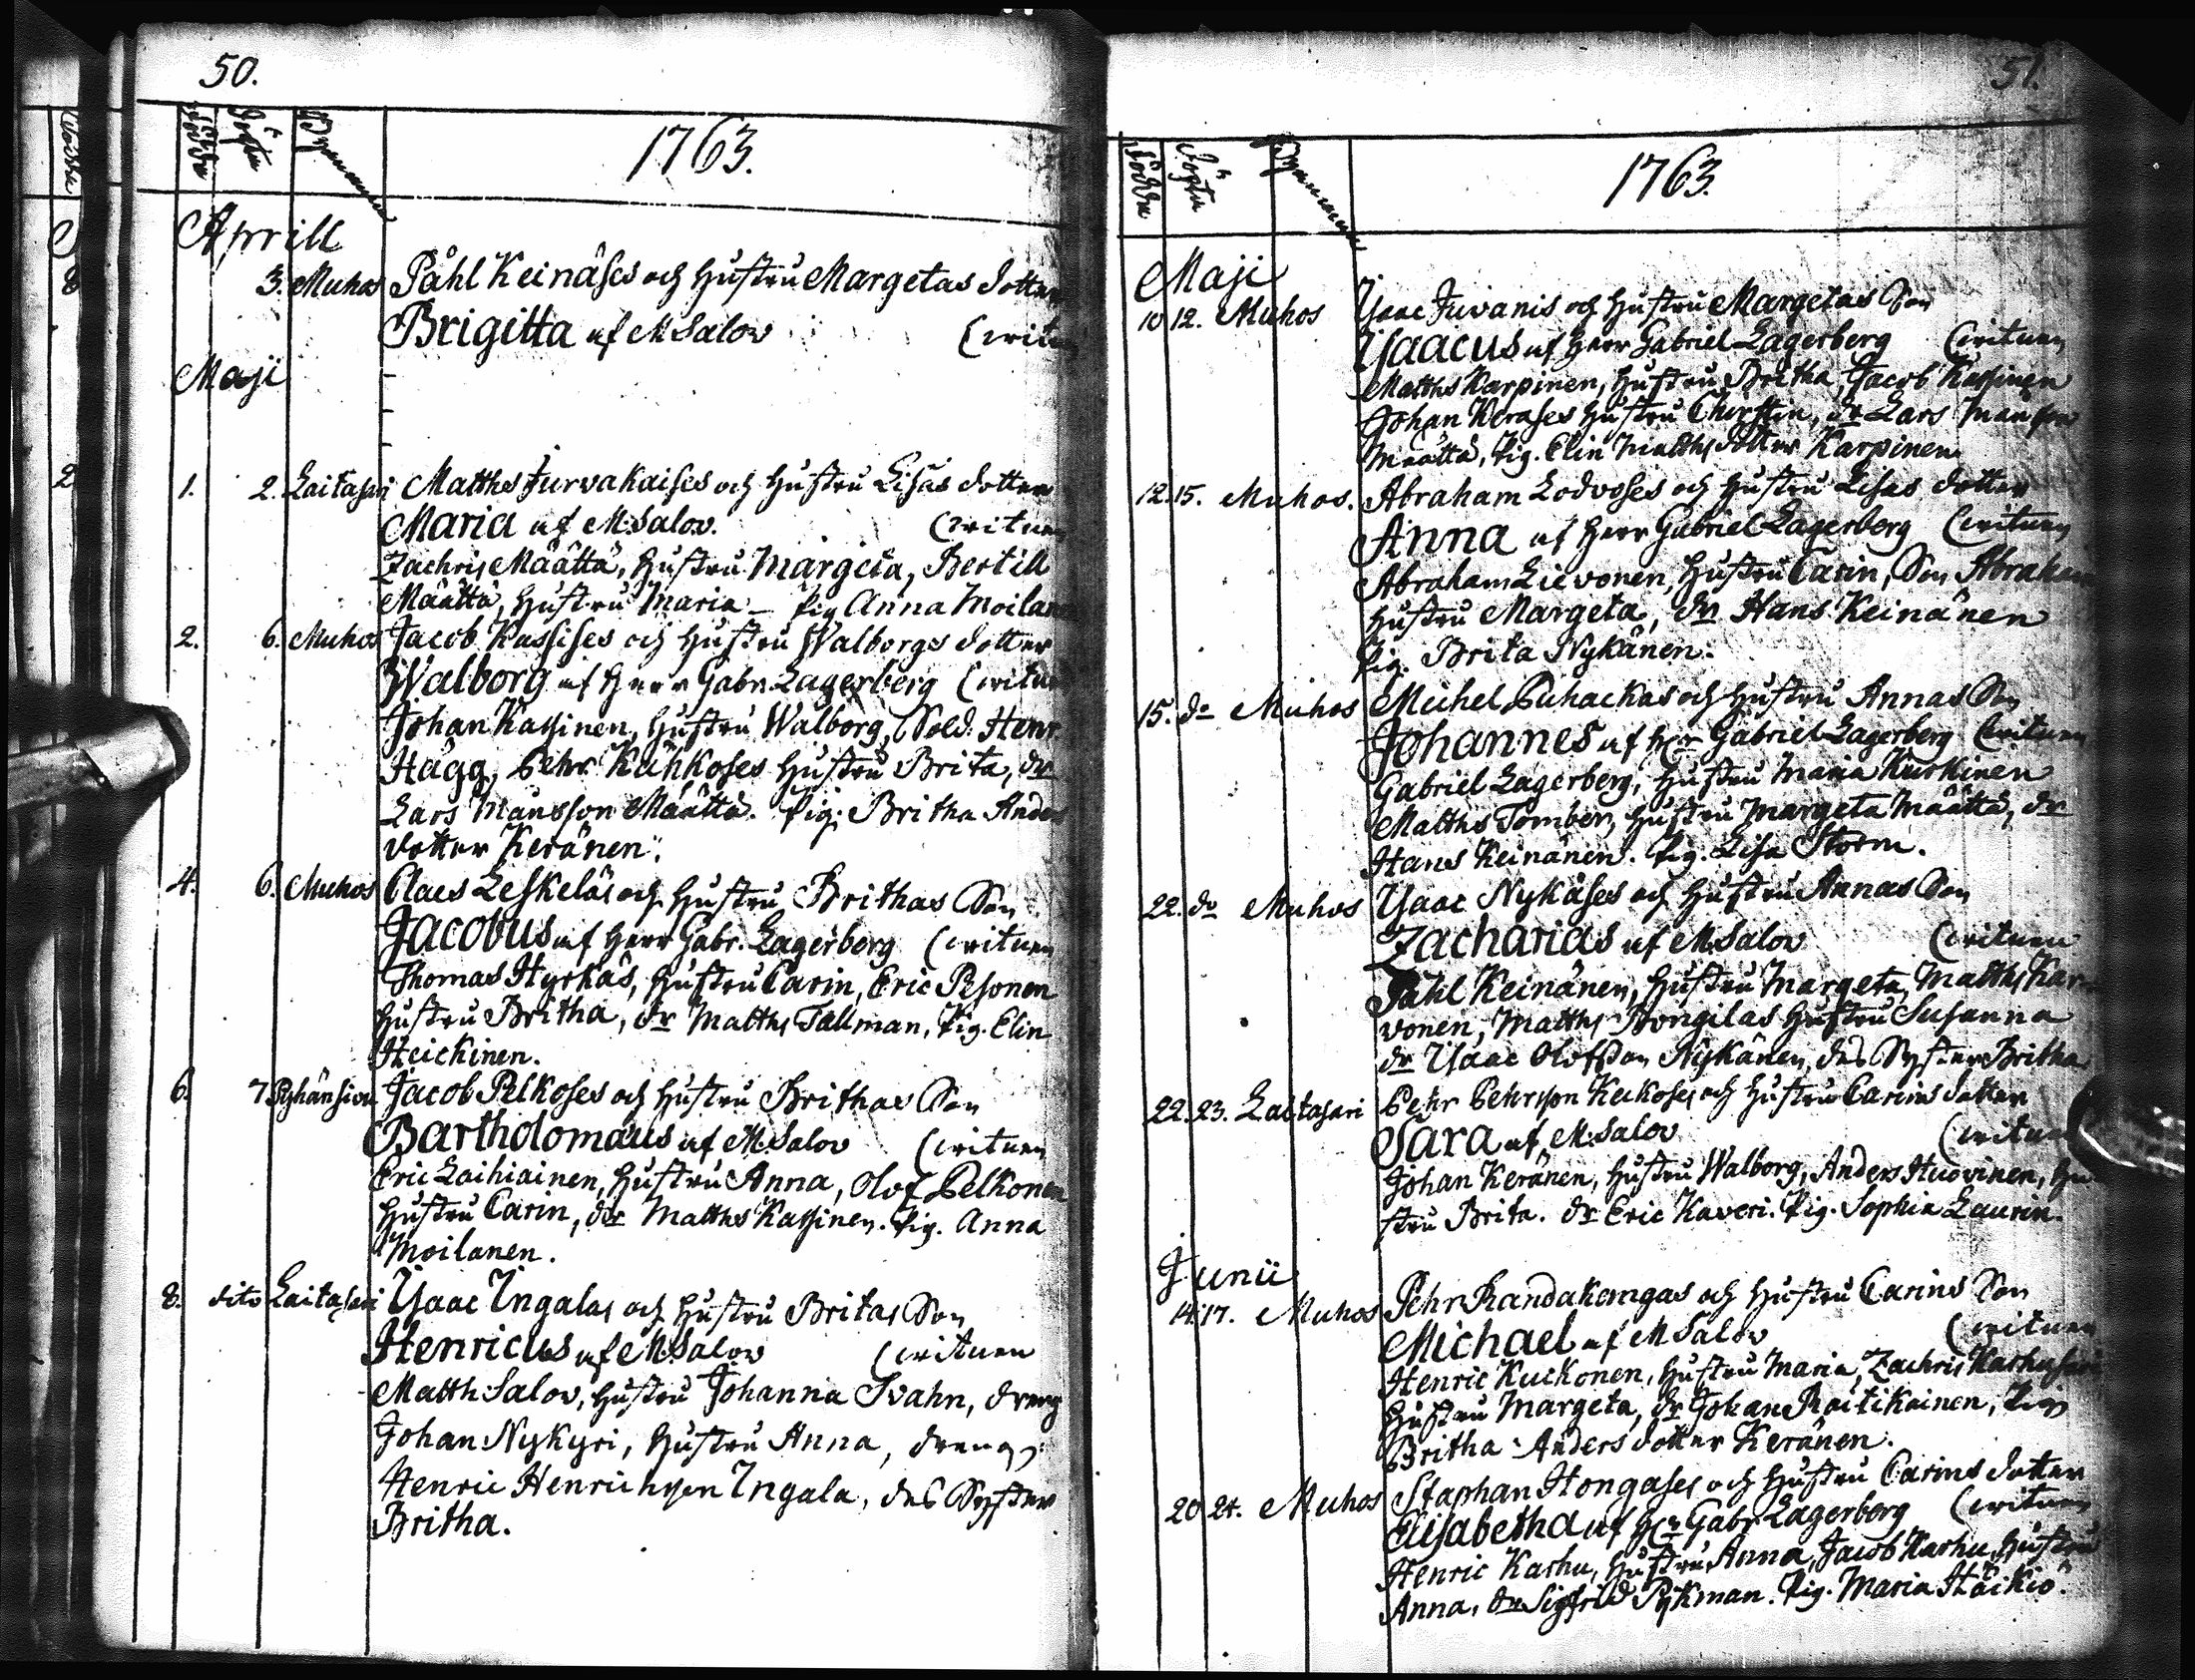 50.
Födde
Döpte
Byarnamn
1763.
Aprill
3. Muhos Påhl Keinäses och Hustru Margetas dotter
Brigitta af M Salov (crituen
Maji
1. 2. Laitasari Matths Jurvakaises och Hustru Lisas dotter
Maria af M: Salov. (crituen
Zachris Määttä, Hustru Margeta, Bertill
Määttä, Hustru Maria – Pig Anna Moilanen
2. 6. Muhos Jacob Kassises och Hustru Walborgs dotter
Walborg af Herr Gabr. Lagerberg (crituen
Johan Kassinen, Hustru Walborg, Sold. Henr.
Hägg, Pehr Kähkoses Hustru Brita, dr
Lars Månsson Määttä. Pig. Britha Anders
dotter Keränen.
4. 6. Muhos Claes Leskeläs och Hustru Brithas Son
Jacobus af Herr Gabr. Lagerberg (crituen
Thomas Hyrkäs, Hustru Carin, Eric Pesonen
Hustru Britha, dr Matths Tallman, Pig. Elin
Heickinen.
6. 7. Pyhänsivu Jacob Pelkoses och Hustru Brithas Son
Bartholomäus af M. Salov (crituen
Eric Laihiainen, Hustru Anna, Olof Pelkonen
Hustru Carin, dr Matths Kassinen. Pig. Anna
Moilanen.
8. dito Laitasari Isaac Ingalas och Hustru Britas Son
Henricus af M. Salov (crituen
Matth Salov, Hustru Johanna Svahn, dreng
Johan Nykyri, Hustru Anna, dreng
Henric Henrichsson Ingala, des Syster
Britha.
51.
Födde
Döpte
Byarnamn
1763.
Maji
10 12. Muhos Isaac Juvanis och Hustru Margetas Son
Isaacus af Herr Gabriel Lagerberg (crituen
Matths Karpinen, Hustru Britha, Jacob Kassinen
Johan Keräses Hustru Chirstin, dr Lars Månsson
Määttä, Pig. Elin Matths dotter Karpinen.
12. 15. Muhos. Abraham Lodvoses och Hustru Lisas dotter
Anna af Herr Gabriel Lagerberg (crituen
Abraham Lievonen, Hustru Carin, Son Abraham
Hustru Margeta, dr Hans Keinänen
Pig. Brita Nykänen.
15. do Muhos Michel Puhackas och Hustru Annas Son
Johannes af Hr Gabriel Lagerberg (crituen
Gabriel Lagerberg, Hustru Maria Kurkinen
Matths Tomber, Hustru Margeta Määttä, dr
Hans Keinänen. Pig. Lisa Storm.
22. do Muhos Isaac Nykäses och Hustru Annas Son
Zacharias af M. Salov (crituen
Påhl Keinänen, Hustru Margeta, Matths Kar-
vonen, Matths Pongilas Hustru Susanna
dr Isaac Olofsson Nykänen, des Syster Britha
22. 23. Laitasari Pehr Pehrsson Keckoses och Hustru Carins dotter
Sara af M: Salov (crituen
Johan Keränen, Hustru Walborg, Anders Huovinen, Hu
stru Brita. dr Eric Kaveri. Pig. Sophia Laurin.
Junii
14 17. Muhos Pehr Randakemgas och Hustru Carins Son
Michael af M Salov (crituen
Henric Kuckonen, Hustru Maria, Zachris Karhusari
Hustru Margeta, dr Johan Räitikainen, Pig
Britha Anders dotter Keränen.
20 24. Muhos Staphan Hongases och Hustru Carins dotter
Elisabetha af Hr Gabr Lagerberg (crituen
Henric Karhu, Hustru Anna, Jacob Karhu, Hustru
Anna, dr Sigfrid Pykman. Pig. Maria Häikiö.